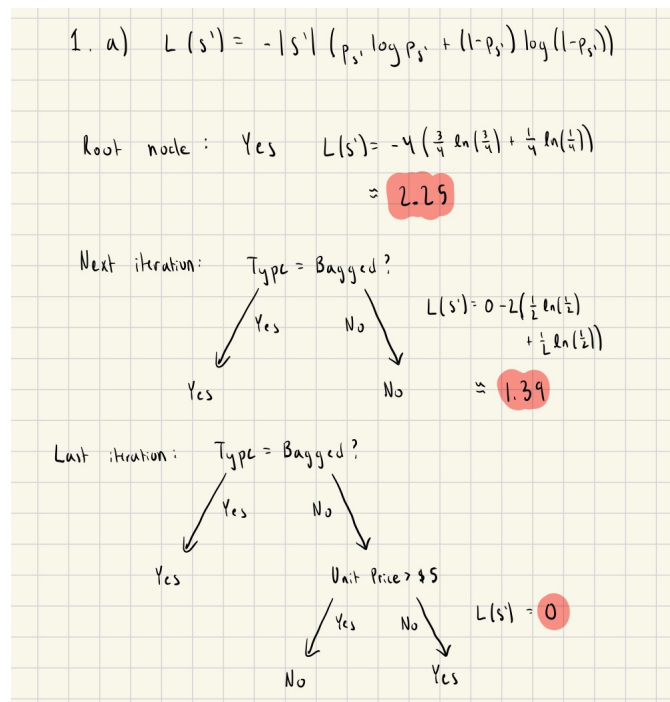 1. a) L(s') = -|s'| (p_s' log p_s' + (1-p_s') log (1-p_s'))
Root node : Yes L(s') = -4 (3/4 ln(3/4) + 1/4 ln(1/4))
≈ 2.25
Next iteration: Type = Bagged?
L(s') = 0 - 2(1/2 ln(1/2)
Yes No
+ 1/2 ln(1/2))
Yes No ≈ 1.39
Last iteration: Type = Bagged?
Yes No
Yes Unit Price > $5
Yes No L(s') = 0
No Yes